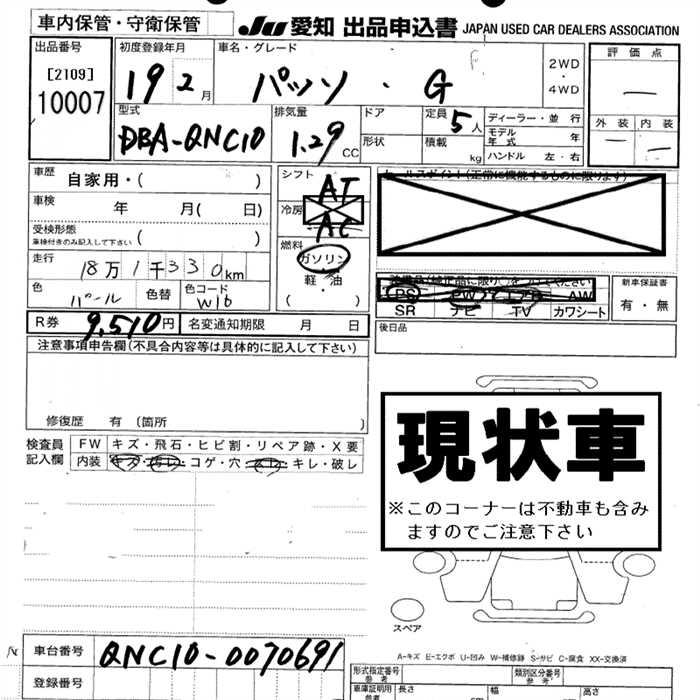 車内保管・守衛保管 JU 愛知 出品申込書 JAPAN USED CAR DEALERS ASSOCIATION
出品番号 初度登録年月 車名・グレード 評価点
[2109] 19 2月 パッソ ・ G F 2WD・4WD —
10007 外装 内装
型式 排気量 ドア 定員 5人 ディーラー・並行 — —
DBA-QNC10 1.29 CC 形状 積載 kg モデル年式 年
ハンドル 左・右
車歴 自家用・( ) シフト AT セールスポイント(正常に機能するものに限ります)
車検 年 月( 日) 冷房 AC
受検形態 車検付きのみ記入して下さい ( ) 燃料 ガソリン・軽油 ( ・ )
走行 18万1千330km
色 パール 色替 色コード W16 PS PW エアB AW 新車保証書
SR ナビ TV カワシート 有・無
R券 9,510円 名変通知期限 月 日 後日品
注意事項申告欄(不具合内容等は具体的に記入して下さい)
修復歴 有 〔箇所
検査員記入欄 FW キズ・飛石・ヒビ割・リペア跡・X要
内装 キズ・汚レ・コゲ・穴・スレ・キレ・破レ
現状車
※このコーナーは不動車も含み
ますのでご注意下さい
スペア
A-キズ E-エクボ U-凹み W-補修跡 S-サビ C-腐食 XX-交換済
車台番号 QNC10-0070691 形式指定番号 参考 類別区分番号
登録番号 車庫証明用 参考 長さ 幅 高さ